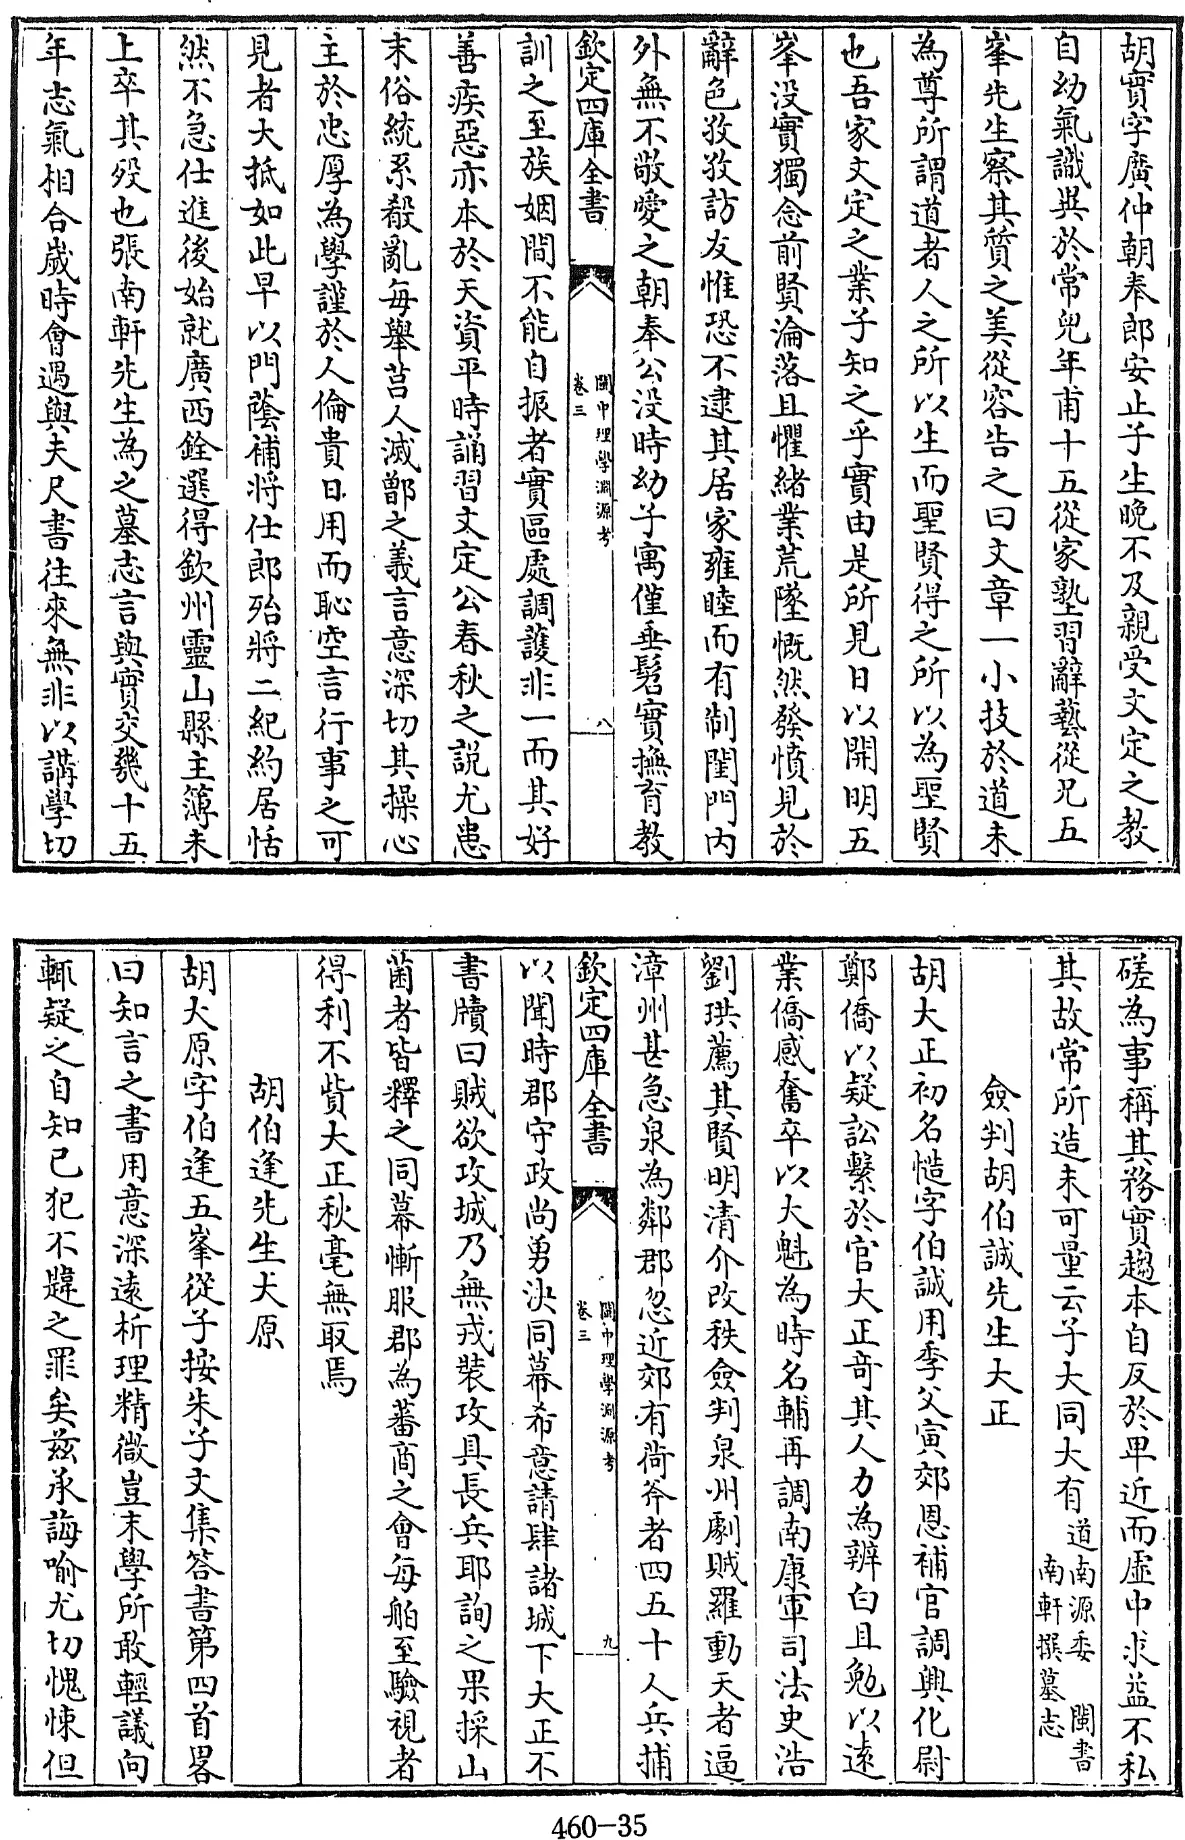 胡實字廣仲朝奉郎安止子生晚不及親受文定之教
自幼氣識異於常兒年甫十五從家塾習辭藝從兄五
峯先生察其質之美從容告之曰文章一小技於道未
為尊所謂道者人之所以生而聖賢得之所以為聖賢
也吾家文定之業子知之乎實由是所見日以開明五
峯没實獨念前賢淪落且懼緒業荒墜慨然發憤見於
辭色孜孜訪友惟恐不逮其居家雍睦而有制閨門内
外無不敬愛之朝奉公没時幼子寓僅垂髫實撫育教
欽定四庫全書
閩中理學淵源考
卷三
八
訓之至族姻間不能自振者實區處調護非一而其好
善疾惡亦本於天資平時誦習文定公春秋之説尤患
末俗統系殽亂每舉莒人滅鄫之義言意深切其操心
主於忠厚為學謹於人倫貴日用而恥空言行事之可
見者大抵如此早以門蔭補將仕郎殆將二紀約居恬
然不急仕進後始就廣西銓選得欽州靈山縣主簿未
上卒其殁也張南軒先生為之墓志言與實交幾十五
年志氣相合歲時會遇與夫尺書往來無非以講學切
磋為事稱其務實趨本自反於卑近而虚中求益不私
其故常所造未可量云子大同大有
道南源委 閩書
南軒撰墓志
僉判胡伯誠先生大正
胡大正初名慥字伯誠用季父寅郊恩補官調興化尉
鄭僑以疑訟繫於官大正奇其人力為辨白且勉以遠
業僑感奮卒以大魁為時名輔再調南康軍司法史浩
劉珙薦其賢明清介改秩僉判泉州劇賊羅動天者逼
漳州甚急泉為鄰郡忽近郊有荷斧者四五十人兵捕
欽定四庫全書
閩中理學淵源考
卷三
九
以聞時郡守政尚勇決同幕希意請肆諸城下大正不
書牘曰賊欲攻城乃無戎裝攻具長兵耶詢之果採山
菌者皆釋之同幕慚服郡為蕃商之會每舶至驗視者
得利不貲大正秋毫無取焉
胡伯逢先生大原
胡大原字伯逢五峯從子按朱子文集答書第四首畧
曰知言之書用意深遠析理精微豈末學所敢輕議向
輒疑之自知已犯不韙之罪矣兹承誨喻尤切愧悚但
460-35